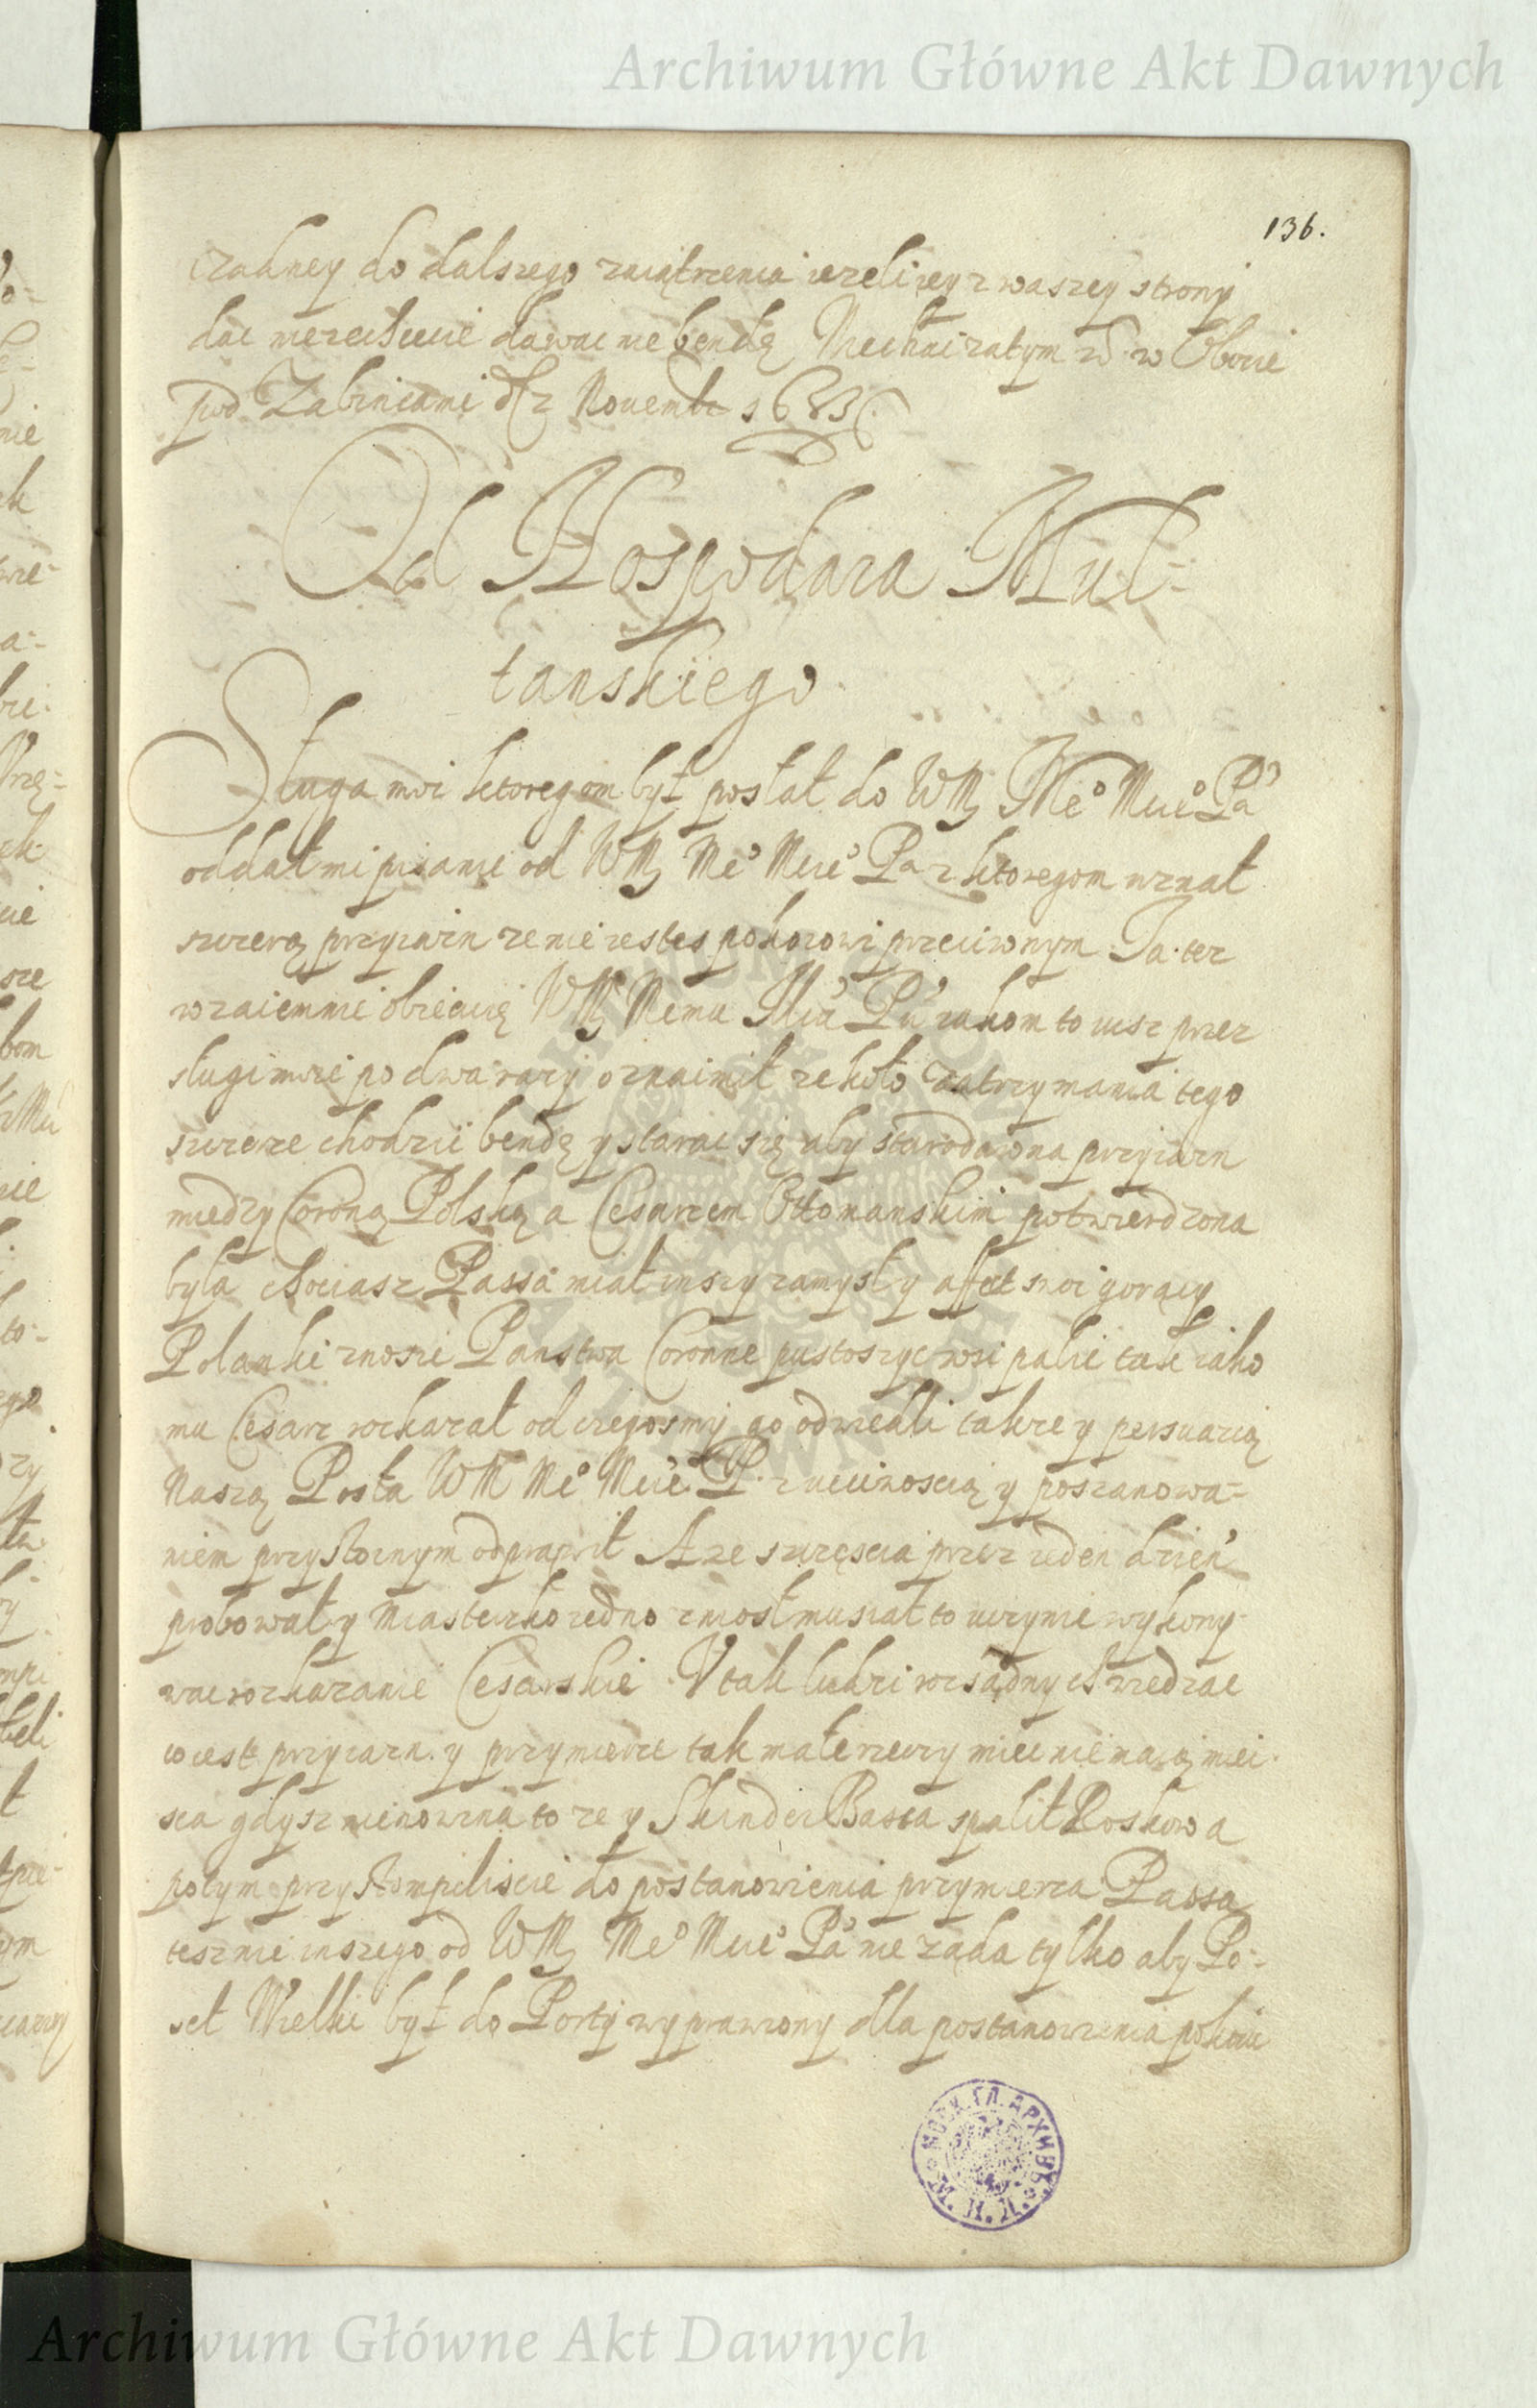 Archiwum Główne Akt Dawnych
136.
zadney do dalszego zaiątrzenia iezeli iey z waszey strony
dac nie zechcecie dawac nie bendę Niech zatym w Obozie
pod Zabincami d. 2 Novembr 1633
Od Hospodara Mul-
tanskiego
Sługa moi ktoregom był posłał do WM Me° Mcie° Pa
oddał mi pisanie od WM Me° Mcie° Pa z ktoregom uznał
szczerą przyiazn ze nie iestes pokoiowi przeciwnym Ja tez
wzaiemnie obiecuię WM Memu Mciu Pu iakom to iusz przez
sługi moie po dwa razy oznaimił ze koło zatrzymania tego
szczerze chodzic bendę y starac się aby starodawna przyiazn
miedzy Coroną Polską a Cesarzem Ottomanskim potwierdzona
była chociasz Bassa miał inszy zamysł y affect swoi gorący
Polanki znosic Panstwa Coronne pustoszyc wsi palic tak iako
mu Cesarz roskazał od czegosmy go odwiedli takze y perswazią
Naszą Posła WM Me° Mcie° P. z uczciwoscią y poszanowa-
niem przystoinym odprawił A ze szczęscia przez ieden dzień
probował y Miasteczko iedno zniosł musiał to uczynic wykony-
wac roskazanie Cesarskie Y tak ludzi rosądnych wiedzac
co iest przyiazn y przymierze tak małe rzeczy miec nie maią miei-
sca gdysz nie nowina to ze y Skinder Bassa spalił Roskow a
potym przystompiliscie do postanowienia przymierza Bassa
tesz nic inszego od WM Me° Mcie° Pa nie ząda tylko aby Po-
seł Wielki był do Porty wyprawiony dla postanowienia pokoiu
МОСК. ГЛ. АРХИВЪ
Archiwum Główne Akt Dawnych